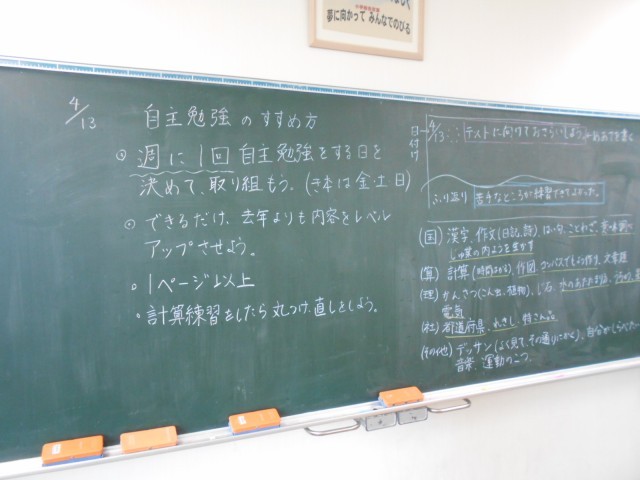 夢に向かって みんなでのびる
4/13 自主勉強のすすめ方
週に1回 自主勉強をする日を
決めて、取り組もう。(き本は金・土 日)
できるだけ、去年よりも内容をレベル
アップさせよう。
1ページ以上
計算練習をしたら丸つけ、直しをしよう。
日付け
4/13 テストに向けておさらいしよう めあてを書く
ふり返り 苦手なところが練習できてよかった。
(国) 漢字、作文(日記、詩)、ことわざ、意味調べ
(算) 計算(時間はかる)、作図、文章題
(理) かんさつ(こん虫、植物)、じしゃく
電気
(社) 都道府県、れきし、特さん品
(その他) デッサン(よく見て、その通りにかく)、
音楽、運動のこつ。